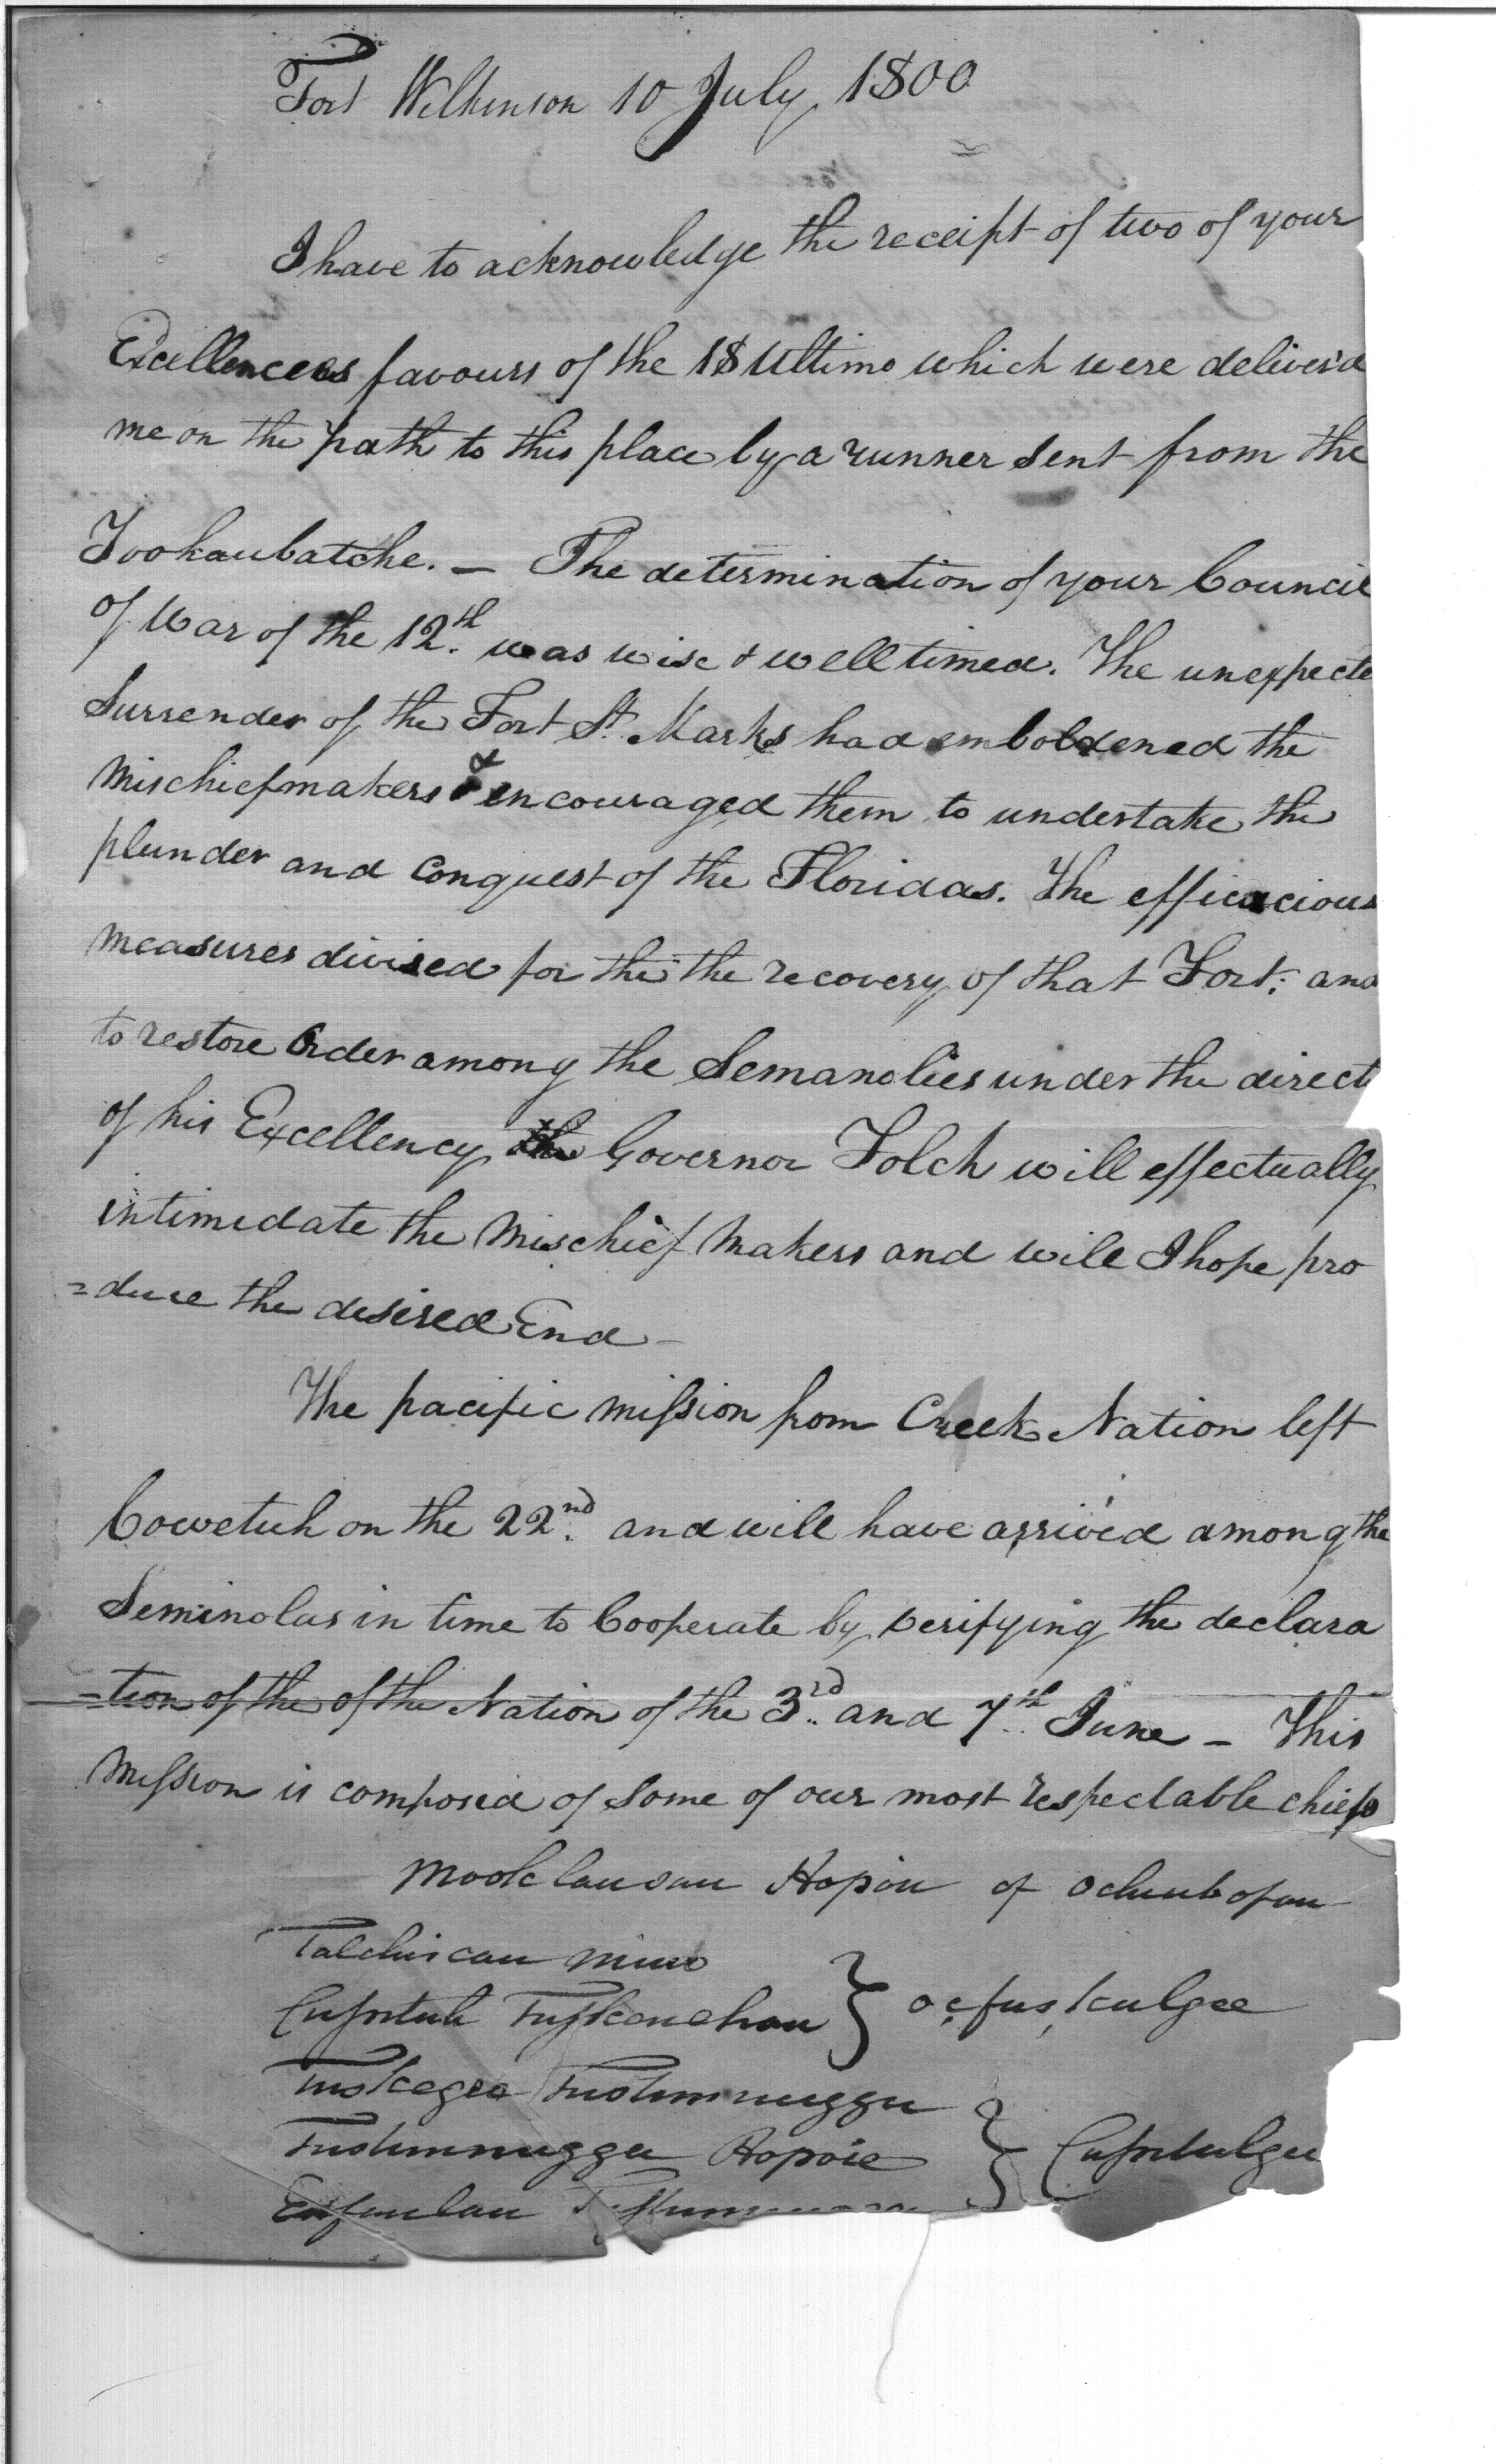 Fort Wilkinson 10 July 1800
I have to acknowledge the receipt of two of your
Excellencees favours of the 18 Ultimo which were deliver'd
me on the path to this place by a runner sent from the
Tookaubatche. — The determination of your Council
of War of the 12.th was wise & well timed. The unexpecte
Surrender of the Fort St. Marks had emboldened the
Mischiefmakers & encouraged them to undertake the
plunder and Conquest of the Floridas. The efficacious
measures divised for the the recovery of that Fort; and
to restore Order among the Semanolies under the direct
of his Excellency Governor Folch will effectually
intimedate the Mischief Makers and will I hope pro
=duce the desired End —
The pacific mission from Creek Nation left
Cowetuh on the 22nd. and will have arrived among the
Seminolas in time to Cooperate by verifying the declara
=tion of the of the Nation of the 3rd. and 7th. June — This
Mission is composed of some of our most respectable chiefs
Hopoie of
Talchiscau mico
Cussetuh } ocfuskulgee
Tuskegee Tustunnuggu
Tustunnuggu Hopoie } Cussetulgee
Eufaulau